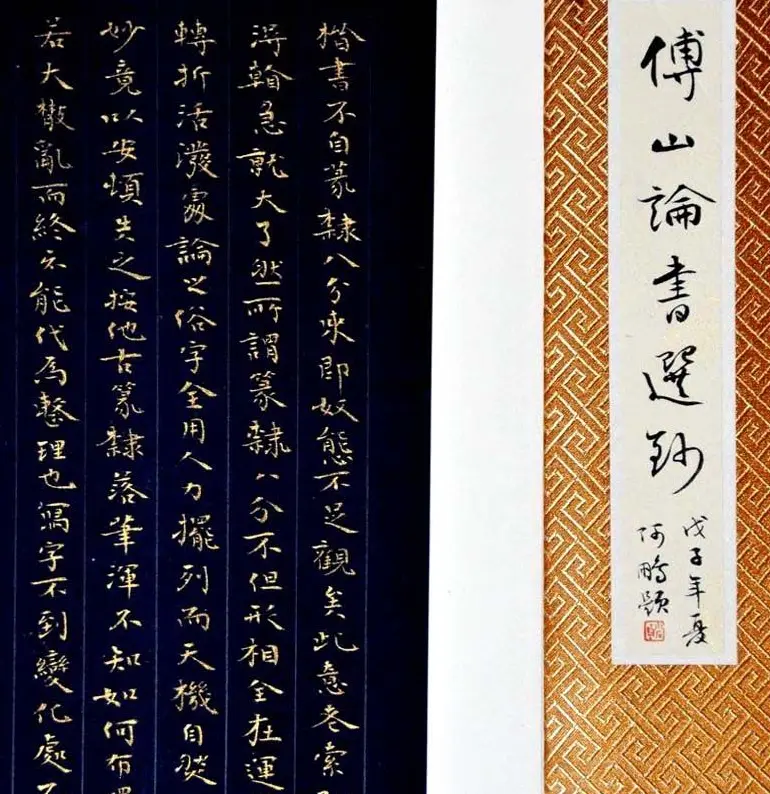 傅山論書選鈔
戊子年夏
阿鵬題
楷書不自篆隸八分來即奴態不足觀矣此意老索
淂翰急就大了然所謂篆隸八分不但形相全在運
轉折活潑處論之俗字全用人力擺列而天機自然
妙竟以安頓失之按他古篆隸落筆渾不知如何布
若大散亂而終不能代爲整理也寫字不到變化處